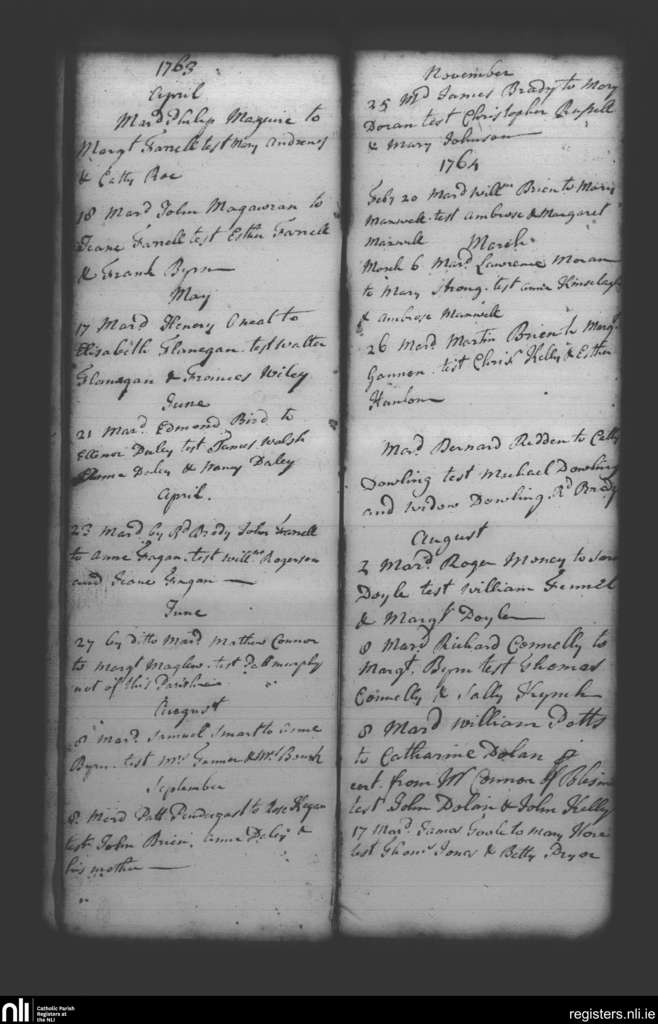 1763
April
Mard Philip Maguire to
Margt Farrell test Mary Andrews
& Catty Roe
18 Mard John Magawran to
Jeane Farrell test Esther Farrell
& Frank Byrn
May
17 Mard Henery Oneal to
Elisabeth Flanegan. test Walter
Flanegan & Frances Wiley
June
21 Mard. Edmond Bird to
Ellenor Daley test James Walsh
Daley & Nancy Daley
April.
23 Mard by Rd Brady John Farrell
to Anne Fagan. test Willm Rogerson
and Jeane Fagan
June
27 by Ditto Mard Mathew Connor
to Margt test Patt murphy
not of this Parish
August
8 Mard. Samuel Smart to Anne
Byrn. test Mr Gannon & Mrs
September
8. Mard Patt Prendergast to Rose Hogan
test John Brien, Anne Daley &
his mother
November
25 Md James Brady to Mary
Doran test Christopher Russell
& Mary Johnson
1764
Feby 20 Mard Willm Brien to Mary
Maxwell. test Ambrose & Margaret
Maxwell
March
March 6 Mard. Lawrence Moran
to Mary Strong. test Anne
& Ambrose Maxwell
26 Mard Martin Brien to Margt
Gannon. test Chris Kelly & Esther
Hanlon
Mard Bernard Redden to Catty
Dowling test Michael Dowling
and Widow Dowling Rd Brady
August
2 Mard. Roger Money to
Doyle test William Fennel
& Margt Doyle
8 Mard Richard Connelly to
Margt. Byrn test Thomas
Connelly & Sally
8 Mard William Potts
to Catharine Dolan
cert. from Mr Connor of
test John Dolan & John Kelly
17 Mard. James to Mary Hore
test Thoms Jones & Betty Pryor
nli
Catholic Parish
Registers at
the NLI
registers.nli.ie